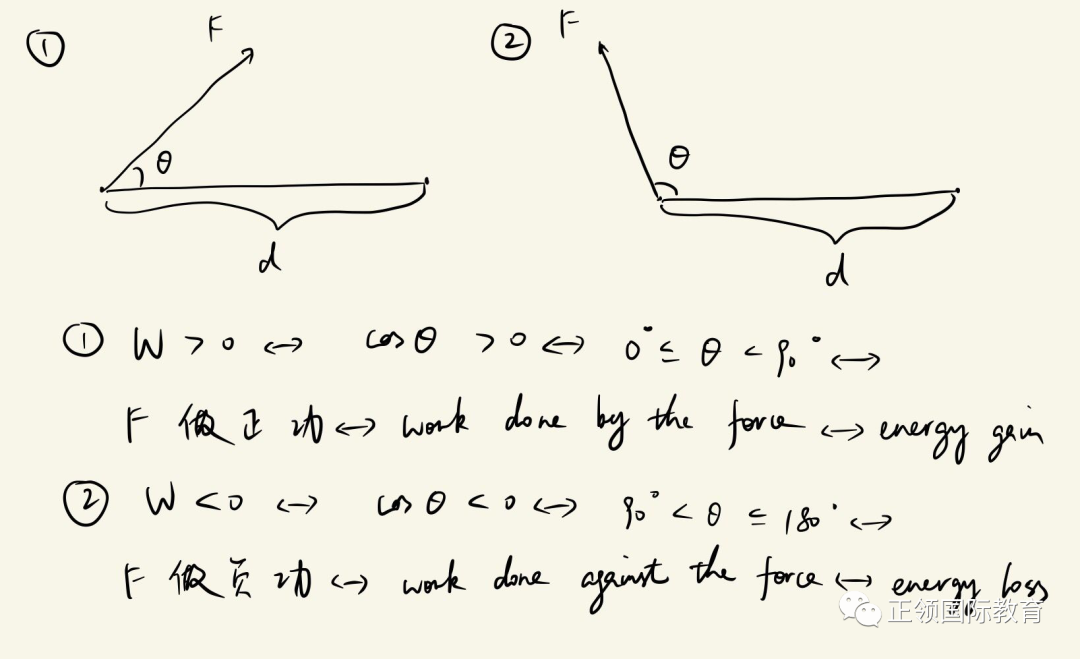 ① F ② F
θ θ
d d
① W > 0 ↔ cosθ > 0 ↔ 0° ≤ θ < 90° ↔
F 做正功 ↔ work done by the force ↔ energy gain
② W < 0 ↔ cosθ < 0 ↔ 90° < θ ≤ 180° ↔
F 做负功 ↔ work done against the force ↔ energy loss
正领国际教育